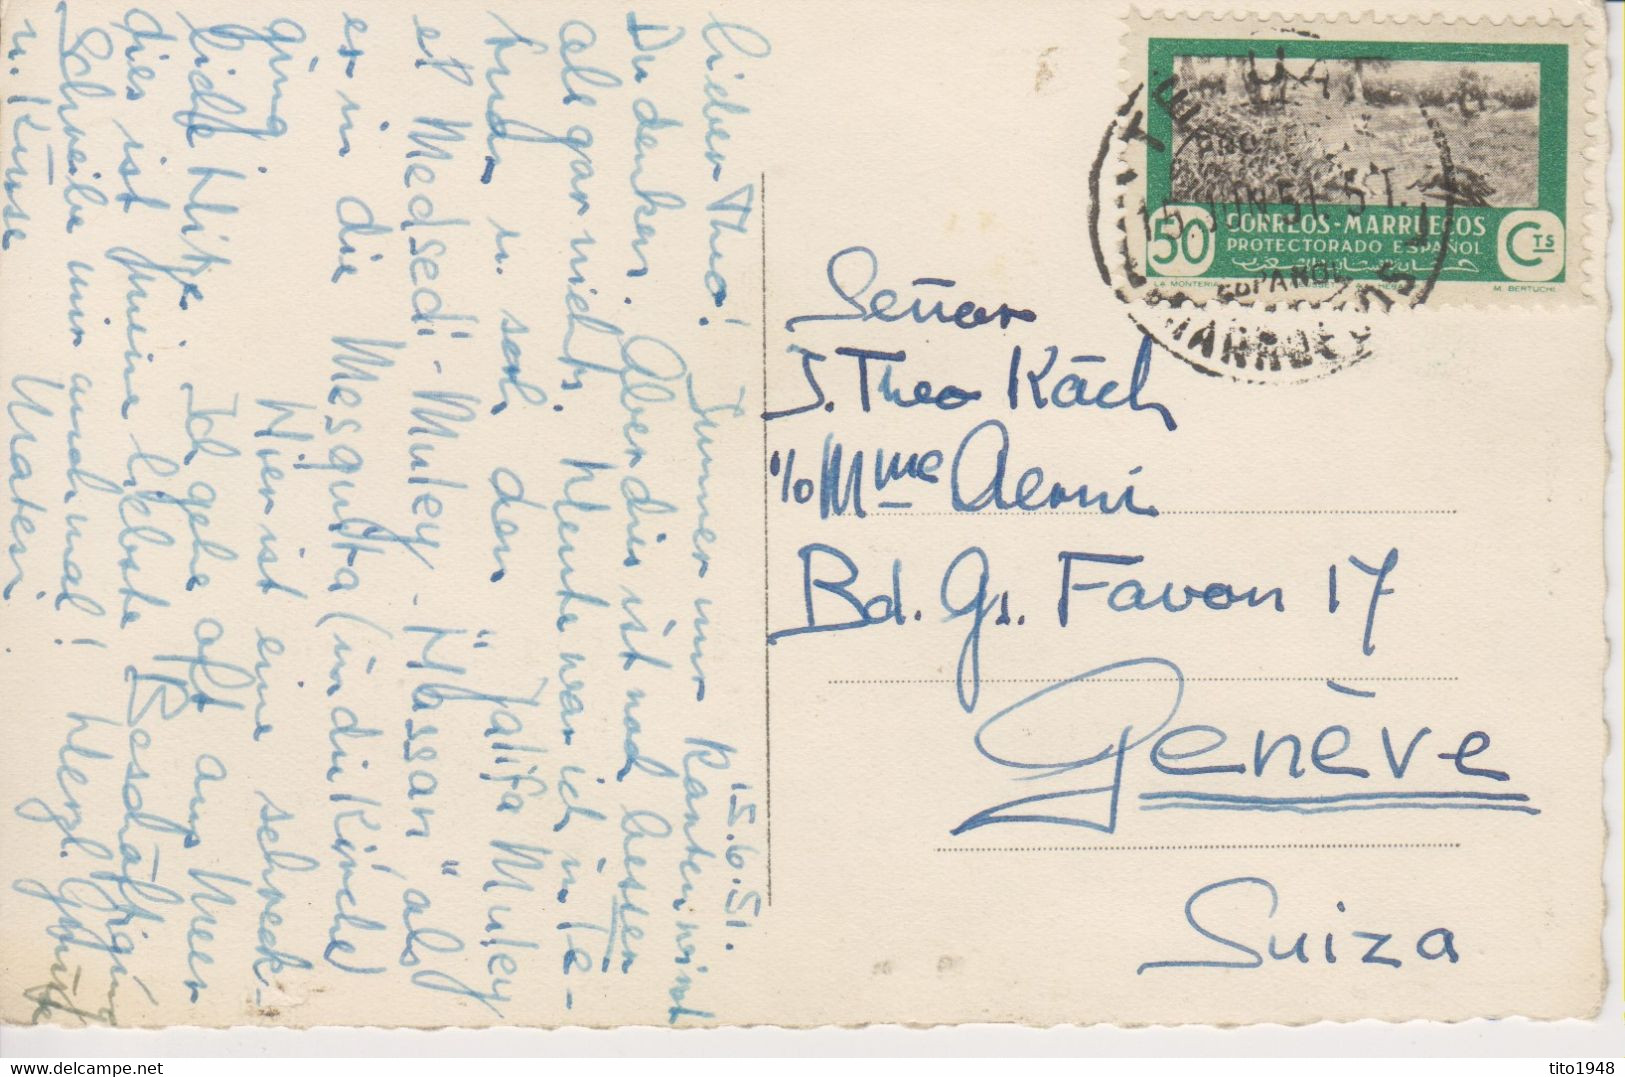 15.6.51.
Lieber Theo! Immer nur Karten, wirst
Du denken. Aber dies ist noch besser
als gar nichts. Heute war ich in Te-
tuan u. sah den "Jalifa Muley
el Medsedi-Muley-Hassan" als
er in die Mesquita (in die Kirche)
ging. Hier ist eine schreck-
liche Hitze. Ich gehe oft ans Meer
dies ist meine liebste Beschäftigung
Schreibe mir auch mal! Herzl. Grüsse
u. Küsse Materi.
TETUAN
15. JUN. 51
ESPAÑOL
MARRUECOS
50 CORREOS-MARRUECOS CTS
PROTECTORADO ESPAÑOL
LA MONTERIA
M. BERTUCHI.
Señor
S. Theo Käch
c/o Mme Aerni
Bd. Gs. Favon 17
Genève
Suiza
tito1948